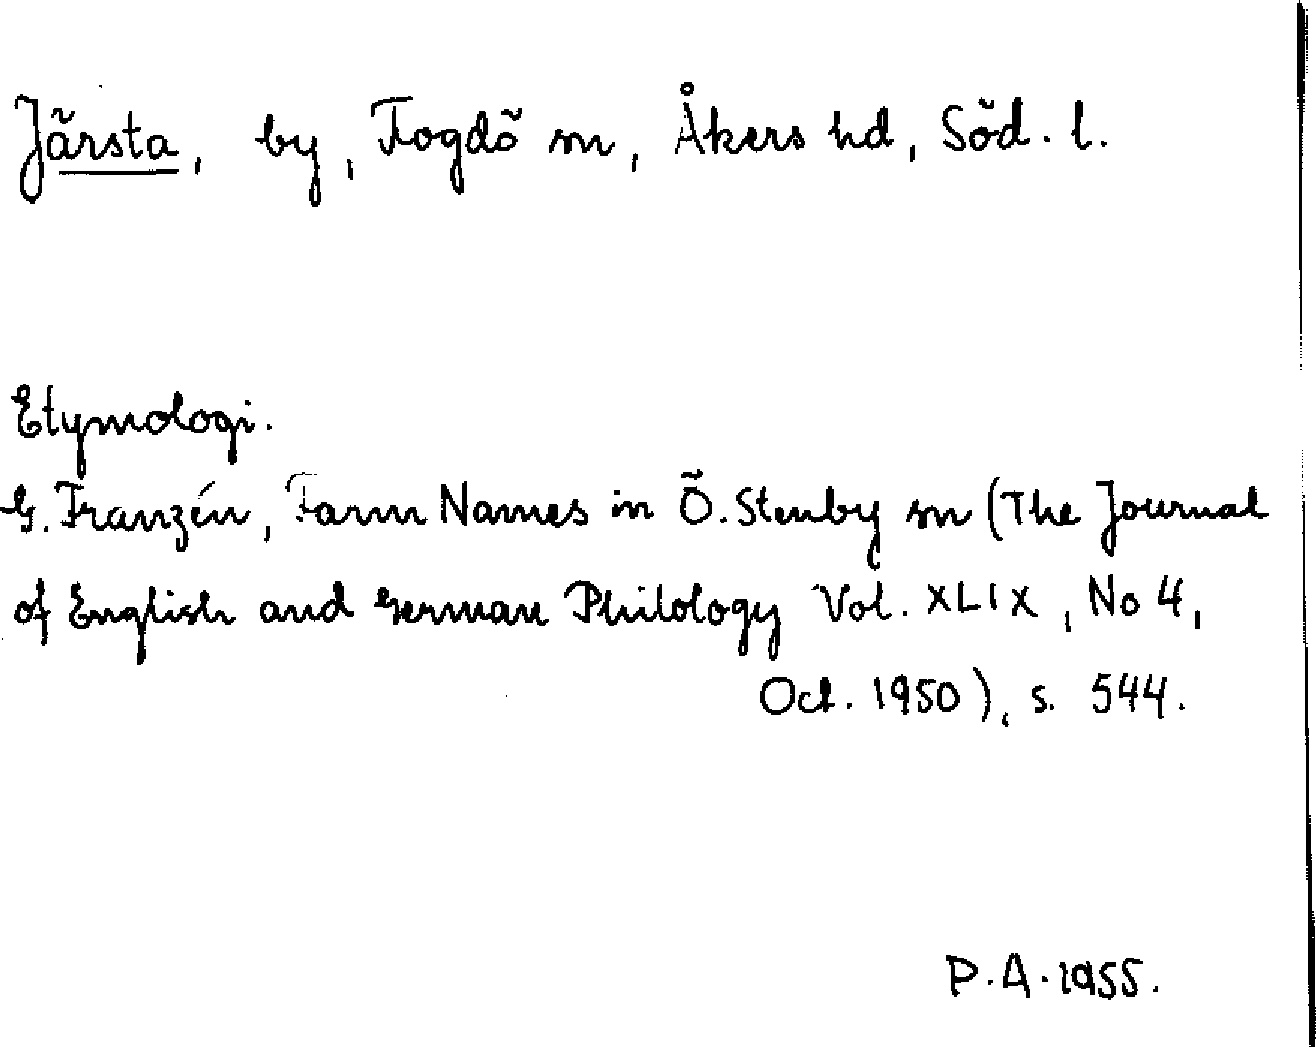 Järsta, by, Fogdö sn, Åkers hd, Söd. l.
Etymologi.
G. Franzén, Farm Names in Ö. Stenby sn (The Journal
of English and German Philology Vol. XLIX, No 4,
Oct. 1950), s. 544.
P.A. 1955.